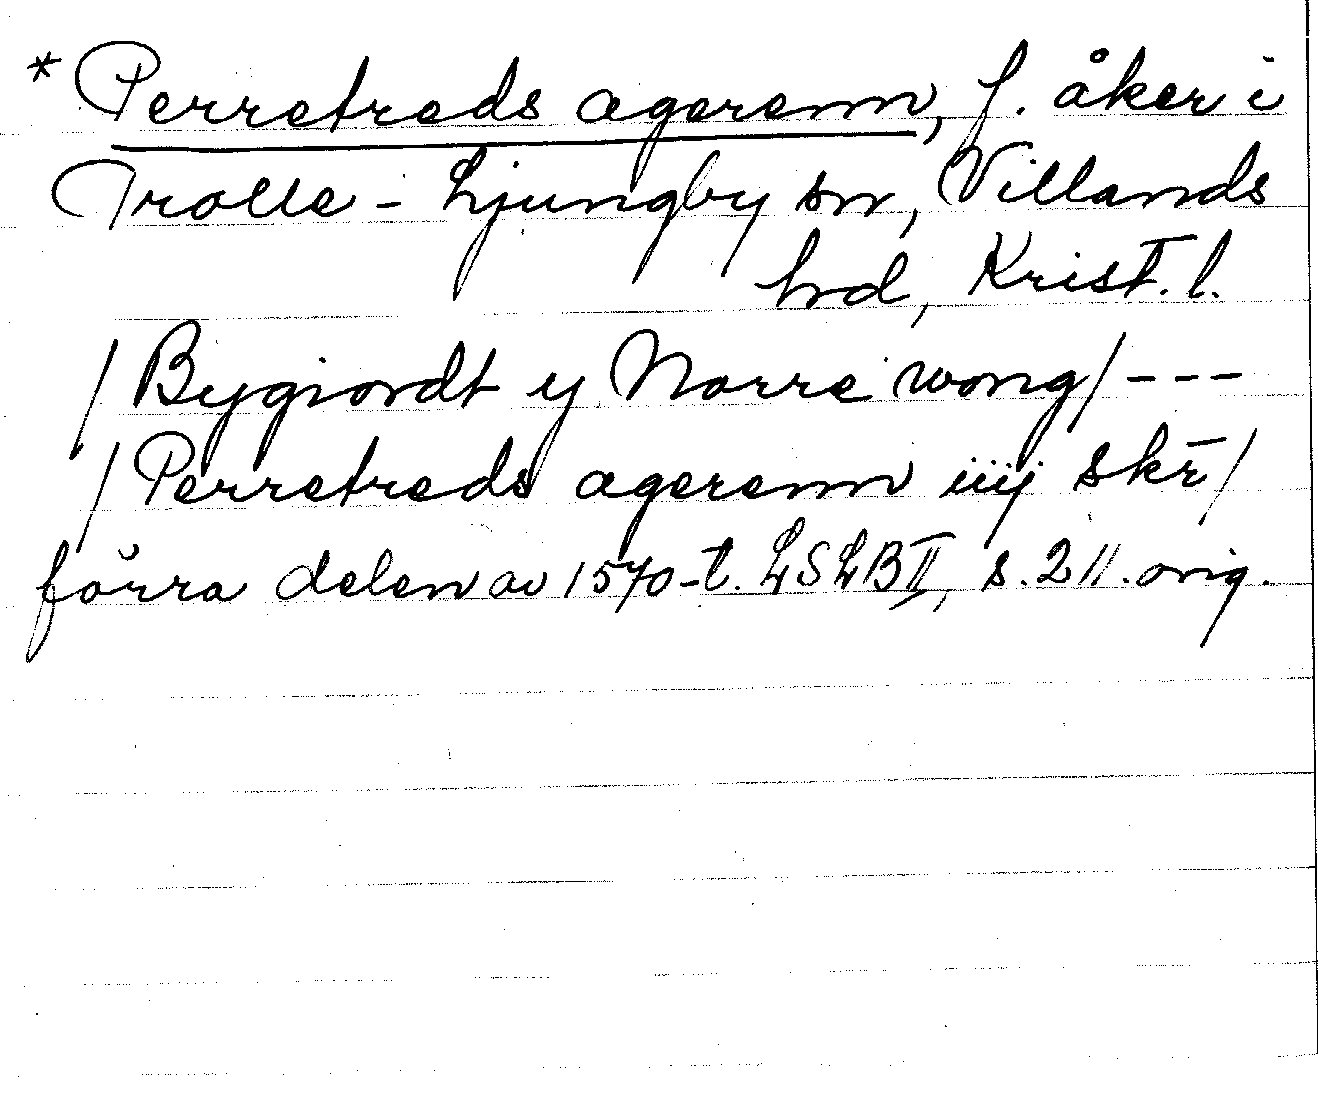 * Perretreds agerenn, f. åker i
Trolle-Ljungby sn, Villands
hrd, Krist. l.
/Bygiordt y Norre wong/ ---
/Perretreds agerenn iiij skr̄/
förra delen av 1570-t. LSLB II, s. 211. orig.